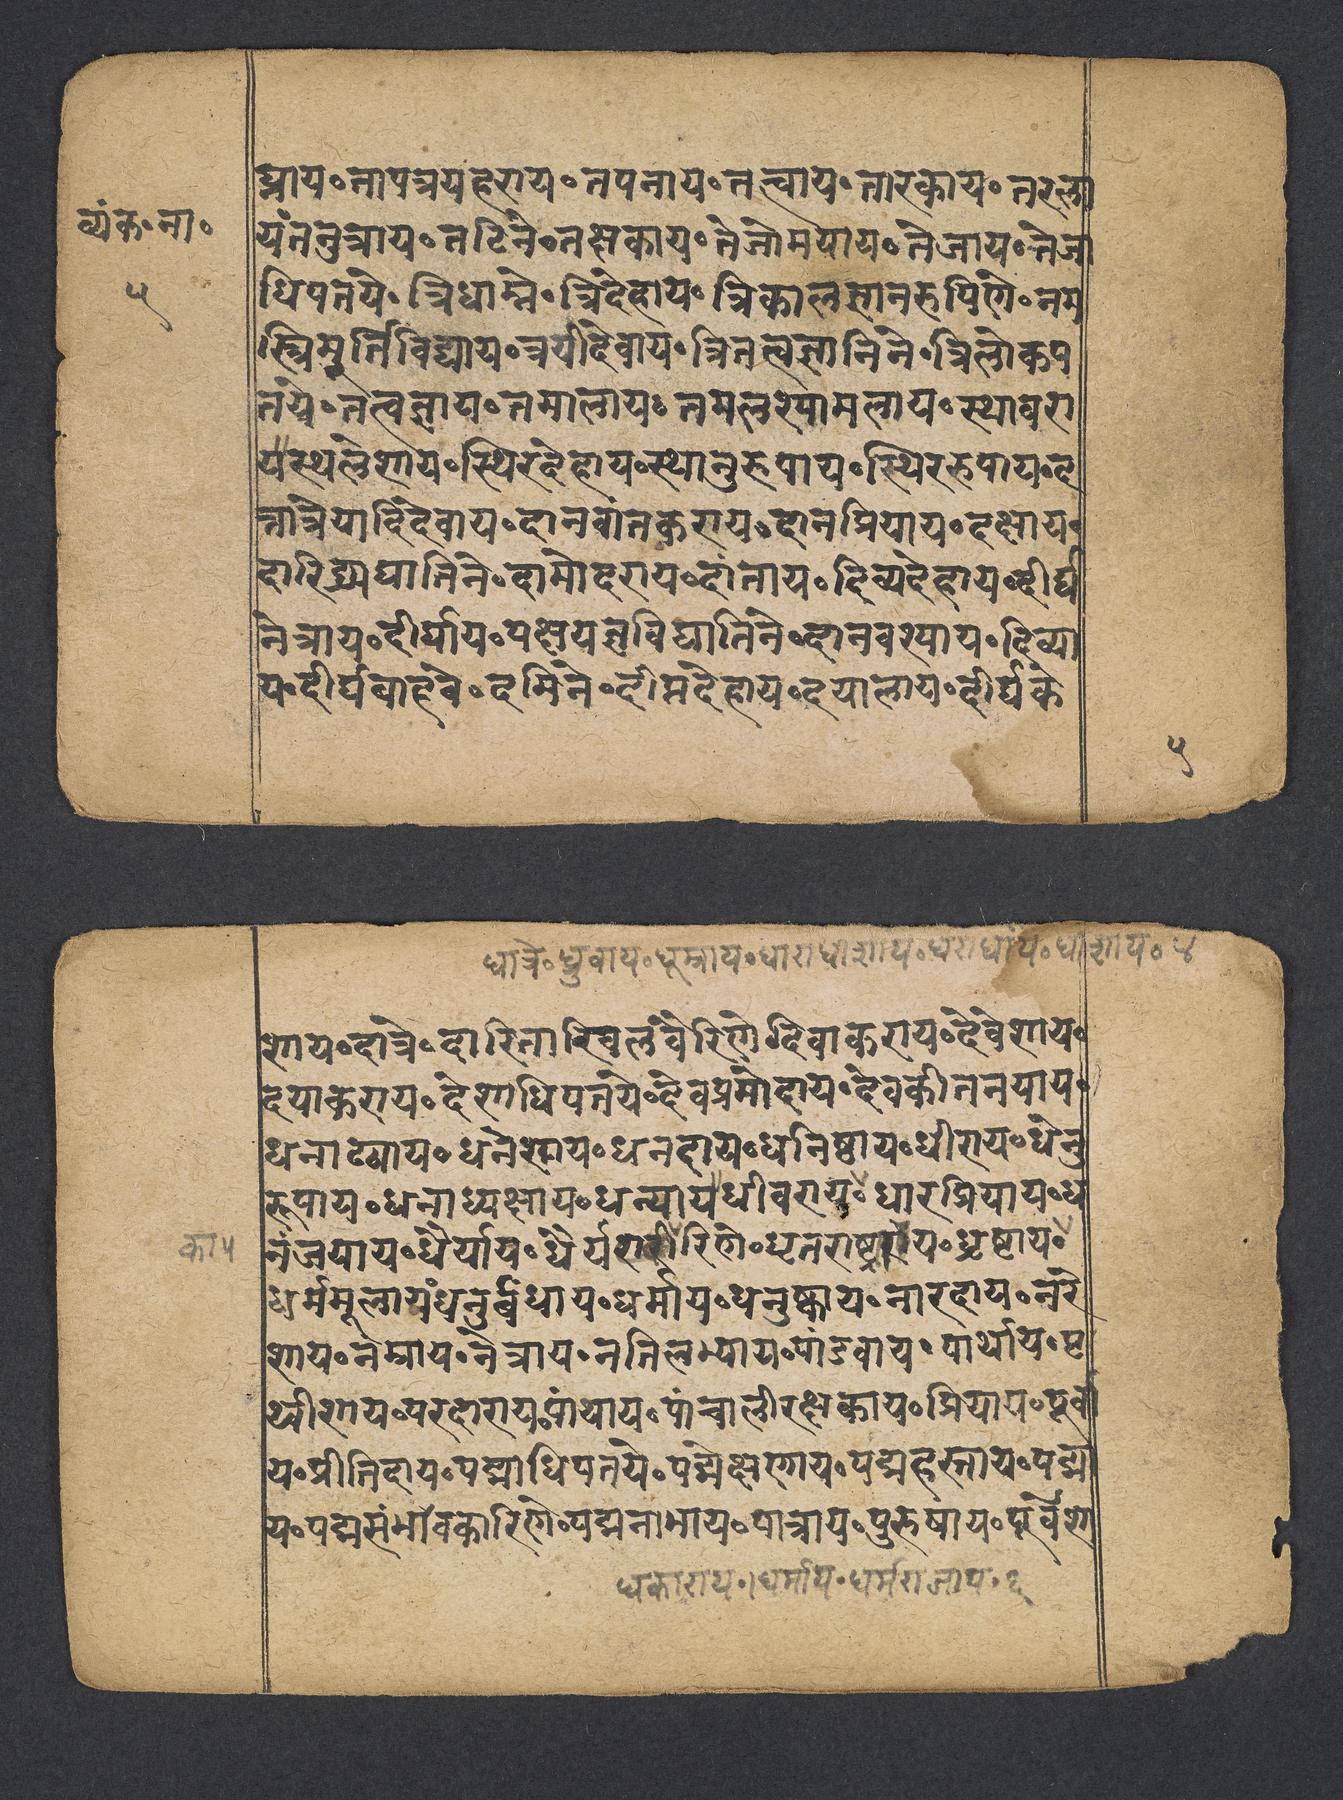 घ्नाय॰तापत्रयहराय॰तपनाय॰तत्वाय॰तारकाय॰तरला
व्यंक॰ना॰
५
यंतनुत्राय॰तटिने॰तक्षकाय॰तेजोमयाय॰तेजाय॰तेजो
धिपतये॰त्रिधाम्ने॰त्रिदेहाय॰त्रिकालज्ञानरुपिणे॰नम
स्त्रिमूर्तिविद्याय॰त्रयीदेवाय॰त्रितत्वज्ञानिने॰त्रिलोकप
तये॰तत्वज्ञाय॰तमालाय॰तमलश्यामलाय॰स्थावरा
य॥स्थलेशाय॰स्थिरदेहाय॰स्थानुरुपाय॰स्थिररुपाय॰द
त्तात्रेयादिदेवाय॰दानवांतकराय॰दानप्रियाय॰दक्षाय॰
दारिद्र्यघातिने॰दामोदराय॰दांताय॰दिव्यदेहाय॰दीर्घ
नेत्राय॰दीर्घाय॰पक्षयज्ञविघातिने॰दानवश्याय॰दिव्या
य॰दीर्घबाहवे॰दमिने॰दीप्तदेहाय॰दयालाय॰दीर्घके
५
धात्रे॰ध्रुवाय॰धूम्राय॰धाराधीशाय॰धराधांय॰धीशाय॰४
शाय॰दात्रे॰दारितारिबलंवेरिणे॰दिवाकराय॰देवेशाय॰
दयाकराय॰देशाधिपतये॰देवप्रमोदाय॰देवकीतनयाय॰
धनाढ्याय॰धनेशाय॰धनदाय॰धनिष्ठाय॰धीराय॰धेनु
रूपाय॰धनाध्यक्षाय॰धन्याय॥धीवराय॰धारप्रियाय॰ध
का५
नंजयाय॰धैर्याय॰धैर्यशरीरिणे॰धृतराष्ट्राय॰धृष्टाय॰
धर्ममूलायंधनुर्बधाय॰धर्माय॰धनुष्काय॰नारदाय॰नरे
शाय॰नम्राय॰नेत्राय॰नतिलभ्याय॰पांडवाय॰पार्थाय॰पृ
थ्वीशाय॰परदाराय॰पांथाय॰पांचालीरक्षकाय॰प्रियाय॰पूर्वा
य॰प्रीतिदाय॰पद्माधिपतये॰पद्मेक्षणाय॰पद्महस्ताय॰पद्मा
य॰पद्मसंभावकारिणे॰पद्मनाभाय॰पात्राय॰पुरुषाय॰पूर्वेशा
धकाराय॰।धर्माय॰धर्मराजाय॰१